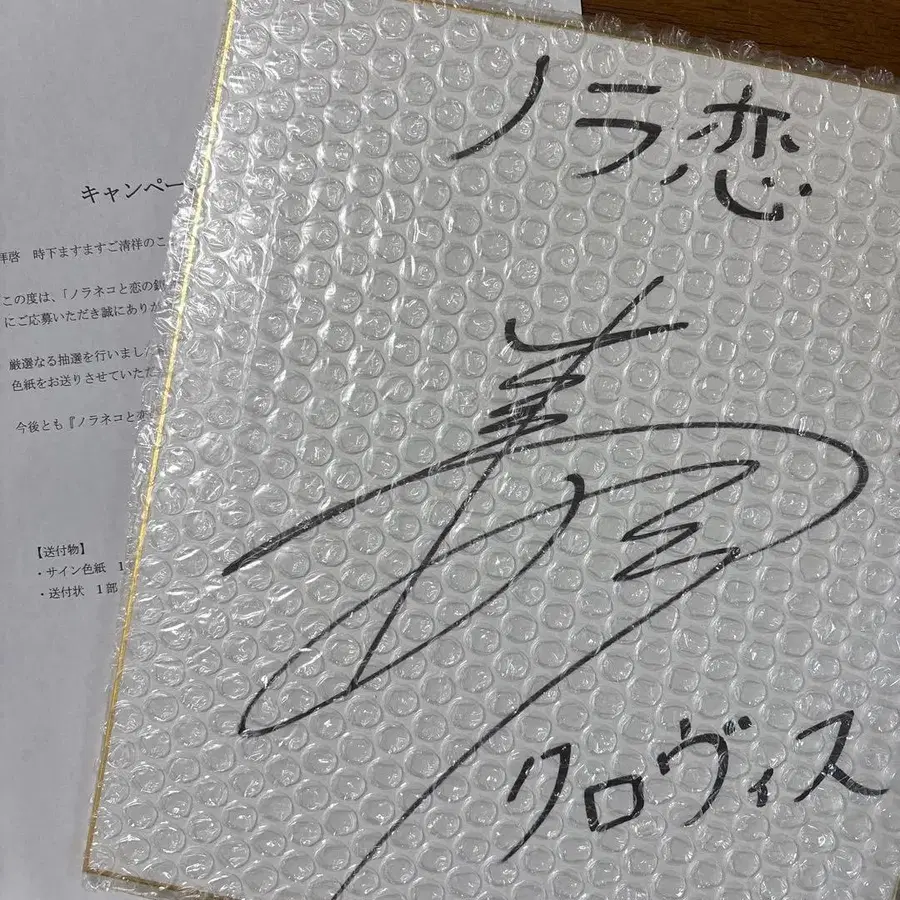 キャンペー
拝啓　時下ますますご清祥のこ
この度は、「ノラネコと恋の錬
にご応募いただき誠にありが
厳選なる抽選を行いました
色紙をお送りさせていただ
今後とも『ノラネコと恋
【送付物】
・サイン色紙　1
・送付状　1部
ノラ恋
クロヴィス